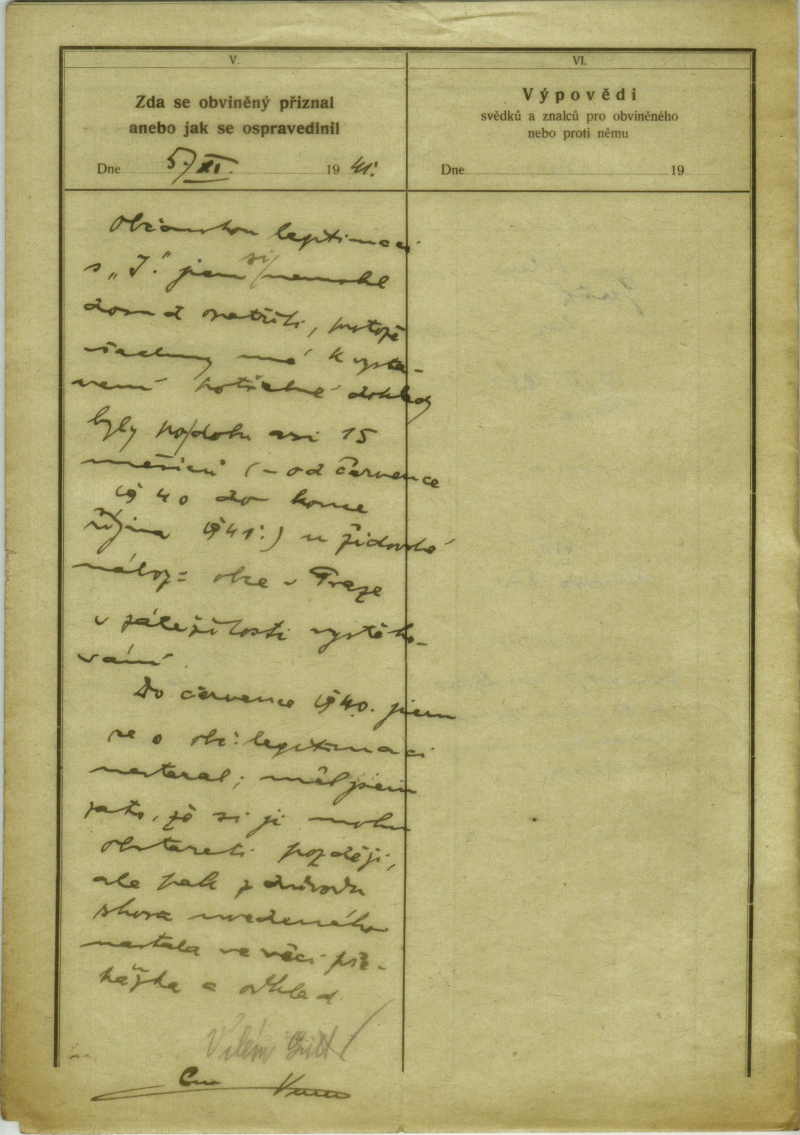 V.
Zda se obviněný přiznal
anebo jak se ospravedlnil
Dne 5/XI. 19 41.
VI.
Výpovědi
svědků a znalců pro obviněného
nebo proti němu
Dne 19
Občanskou legitimaci
s „J." jsem si nemohl
dosud opatřiti, protože
všechny mé k vysta-
vení potřebné doklady
byly po dobu asi 15
měsíců (– od července
1940 do konce
října 1941) u židovské
nábož. obce v Praze
v záležitosti vystěho-
vání.
Do července 1940. jsem
se o obč. legitimaci
nestaral; měl jsem
za to, že si ji mohu
obstarati později,
ale pak z důvodu
shora uvedeného
nastala ve věci pře-
kážka a odklad.
Vilém